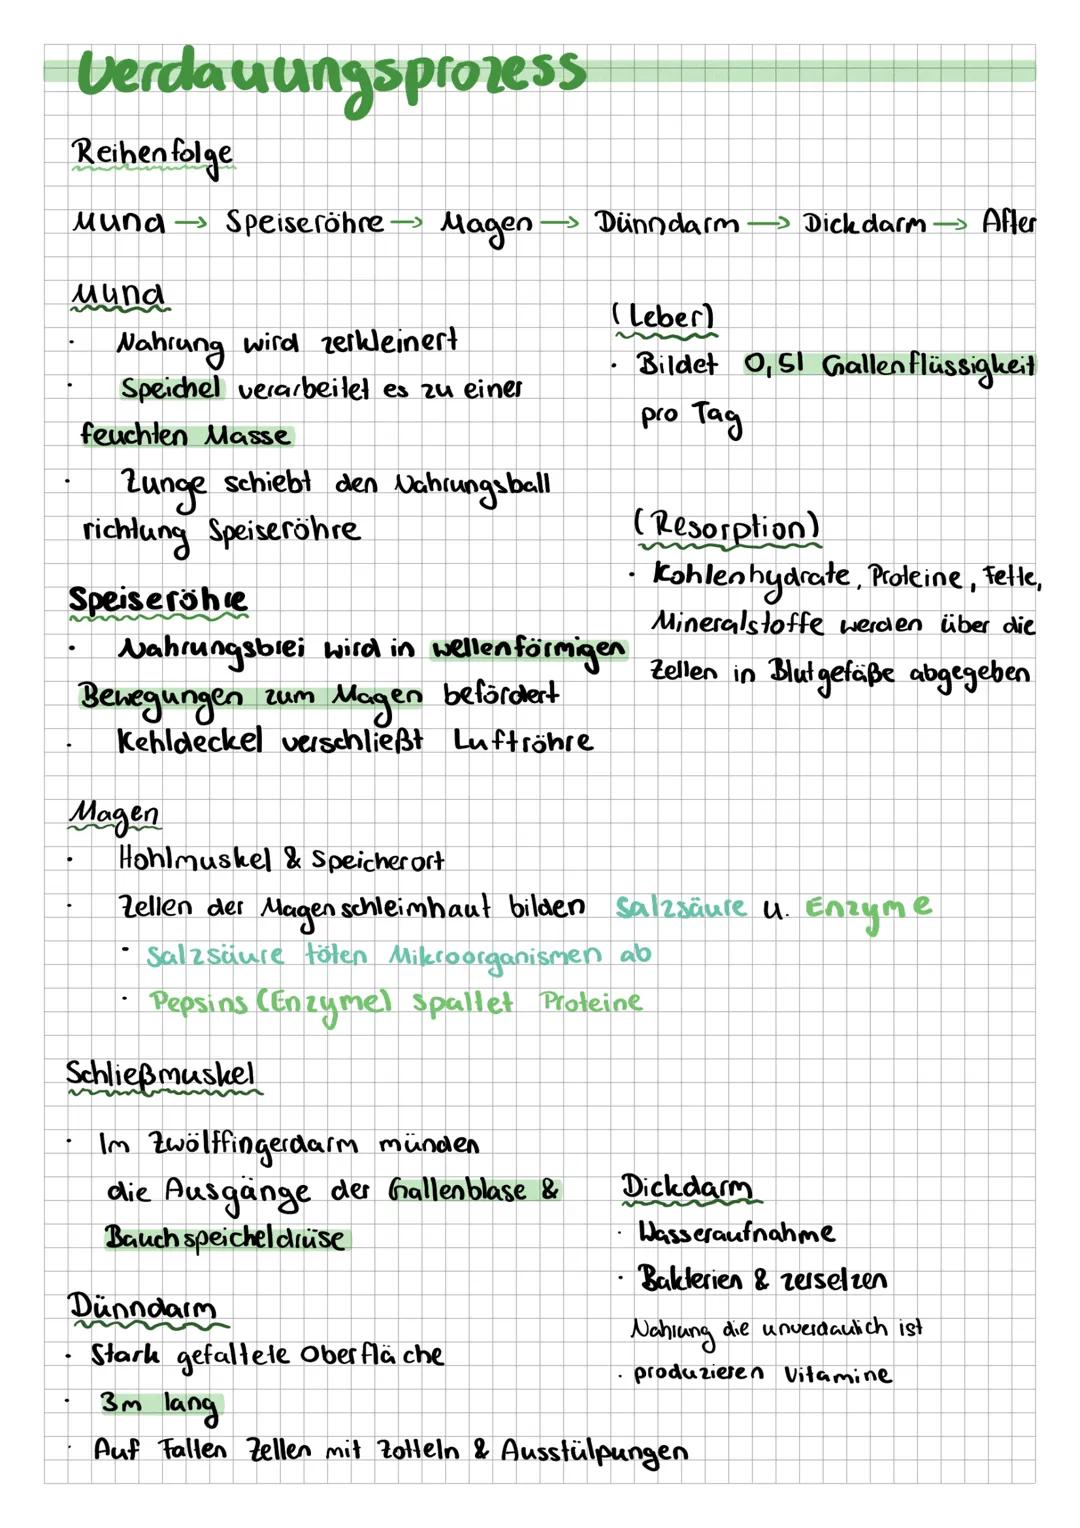 Verdauungsprozess
Reihenfolge
Mund → Speiseröhre → Magen → Dünndarm → Dickdarm → After
Mund
· Nahrung wird zerkleinert
· Speichel verarbeitet es zu einer
feuchten Masse
· Zunge schiebt den Nahrungsball
richtung Speiseröhre
(Leber)
· Bildet 0,5l Gallenflüssigkeit
pro Tag
(Resorption)
· Kohlenhydrate, Proteine, Fette,
Mineralstoffe werden über die
Zellen in Blutgefäße abgegeben
Speiseröhre
· Nahrungsbrei wird in wellenförmigen
Bewegungen zum Magen befördert
· Kehldeckel verschließt Luftröhre
Magen
· Hohlmuskel & Speicherort
· Zellen der Magenschleimhaut bilden Salzsäure u. Enzyme
· Salzsäure töten Mikroorganismen ab
· Pepsins (Enzyme) spaltet Proteine
Schließmuskel
· Im Zwölffingerdarm münden
die Ausgänge der Gallenblase &
Bauchspeicheldrüse
Dünndarm
· Stark gefaltete Oberfläche
· 3m lang
· Auf Falten Zellen mit Zotteln & Ausstülpungen
Dickdarm
· Wasseraufnahme
· Bakterien & zersetzen
Nahrung die unverdaulich ist
· produzieren Vitamine